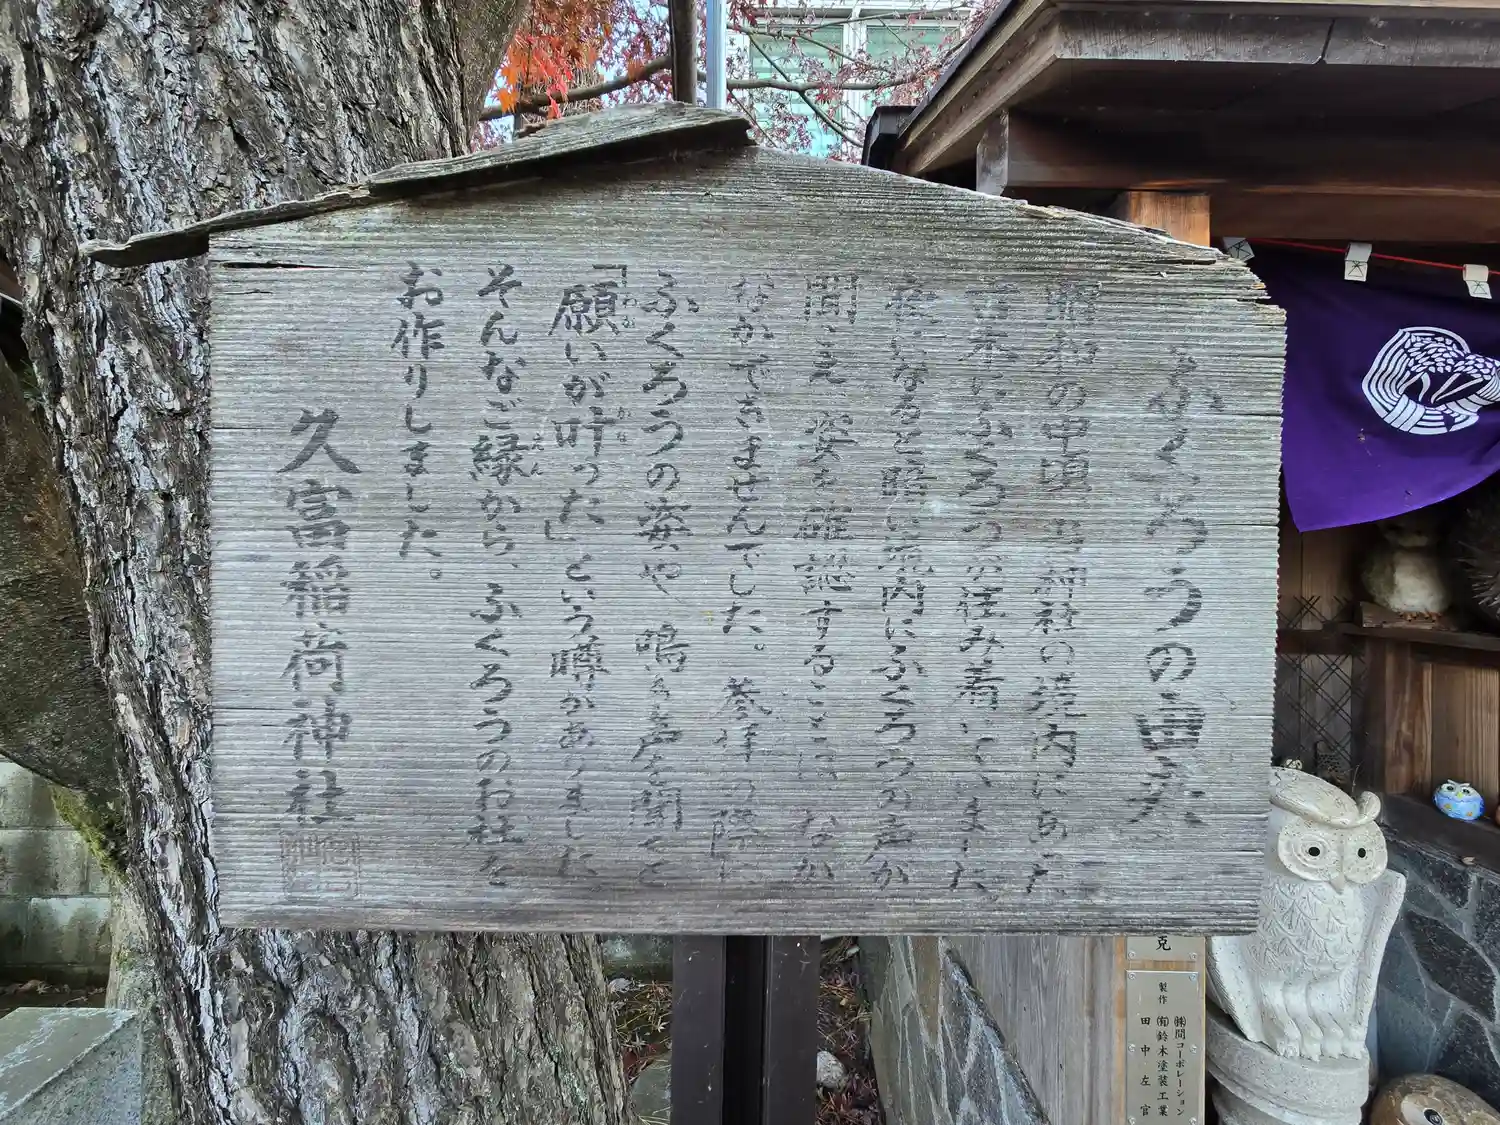 ふくろうの由来
昭和の中頃 当神社の境内にあった
古木にふくろうが住み着いていました。
夜になると暗い境内にふくろうの声が
聞こえ姿を確認することは なかなかできませんでした。参拝の際に
ふくろうの姿や 鳴き声を聞くと
「願いが叶った」という噂がありました。
そんなご縁から、ふくろうのお社を
お作りしました。
久富稲荷神社
克
製作
㈱間コーポレーション
㈲鈴木塗装工業
田中左官